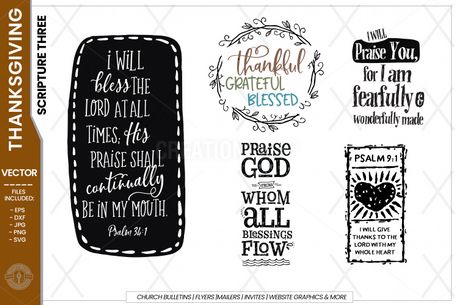 THANKSGIVING
SCRIPTURE THREE
VECTOR
FILES
INCLUDED:
- EPS
- DXF
- JPG
- PNG
- SVG
I will
bless THE
LORD AT ALL
TIMES; His
PRAISE SHALL
continually
BE IN MY MOUTH.
Psalm 34:1
thankful
GRATEFUL
BLESSED
I WILL
Praise You,
for I am
fearfully &
wonderfully made
PRAISE
GOD
FROM
WHOM
ALL
BLESSINGS
FLOW
PSALM 9:1
I WILL GIVE
THANKS TO THE
LORD WITH MY
WHOLE HEART
CHURCH BULLETINS | FLYERS |MAILERS | INVITES | WEBSITE GRAPHICS & MORE